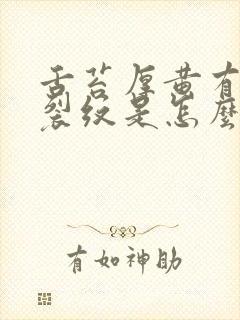 舌苔厚黄有
裂纹是怎麽
有如神助